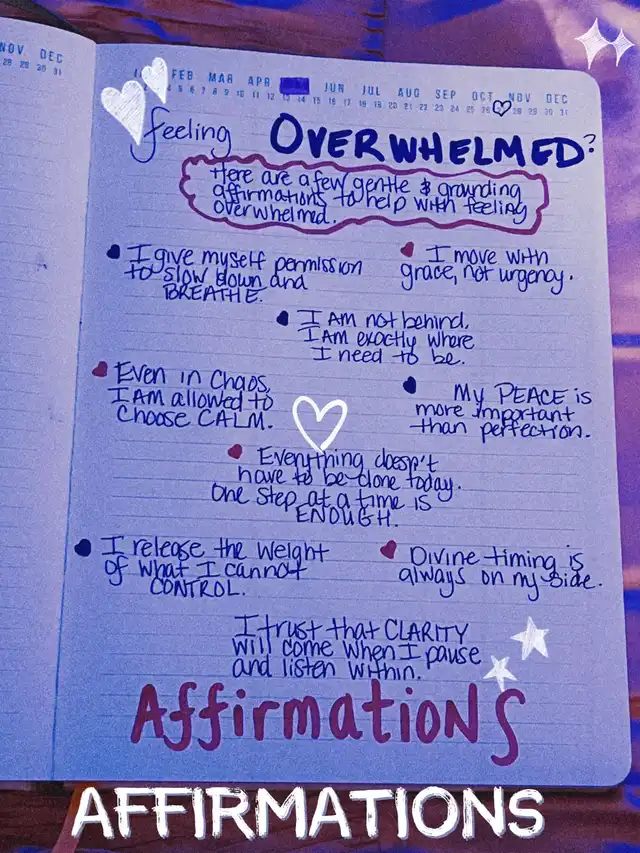 NOV DEC
28 29 30 31
FEB MAR APR JUN JUL AUG SEP OCT NOV DEC
4 5 6 7 8 9 10 11 12 13 14 15 16 17 18 19 20 21 22 23 24 25 26 28 29 30 31
feeling OVERWHELMED?
Here are a few gentle & grounding
affirmations to help with feeling
overwhelmed.
I give myself permission
to slow down and
BREATHE.
I move with
grace, not urgency.
I AM not behind,
I AM exactly where
I need to be.
Even in Chaos,
I AM allowed to
Choose CALM.
My PEACE is
more important
than perfection.
Everything doesn't
have to be done today.
One step at a time is
ENOUGH.
I release the weight
of what I cannot
CONTROL.
Divine timing is
always on my side.
I trust that CLARITY
will come when I pause
and listen within.
Affirmations
AFFIRMATIONS